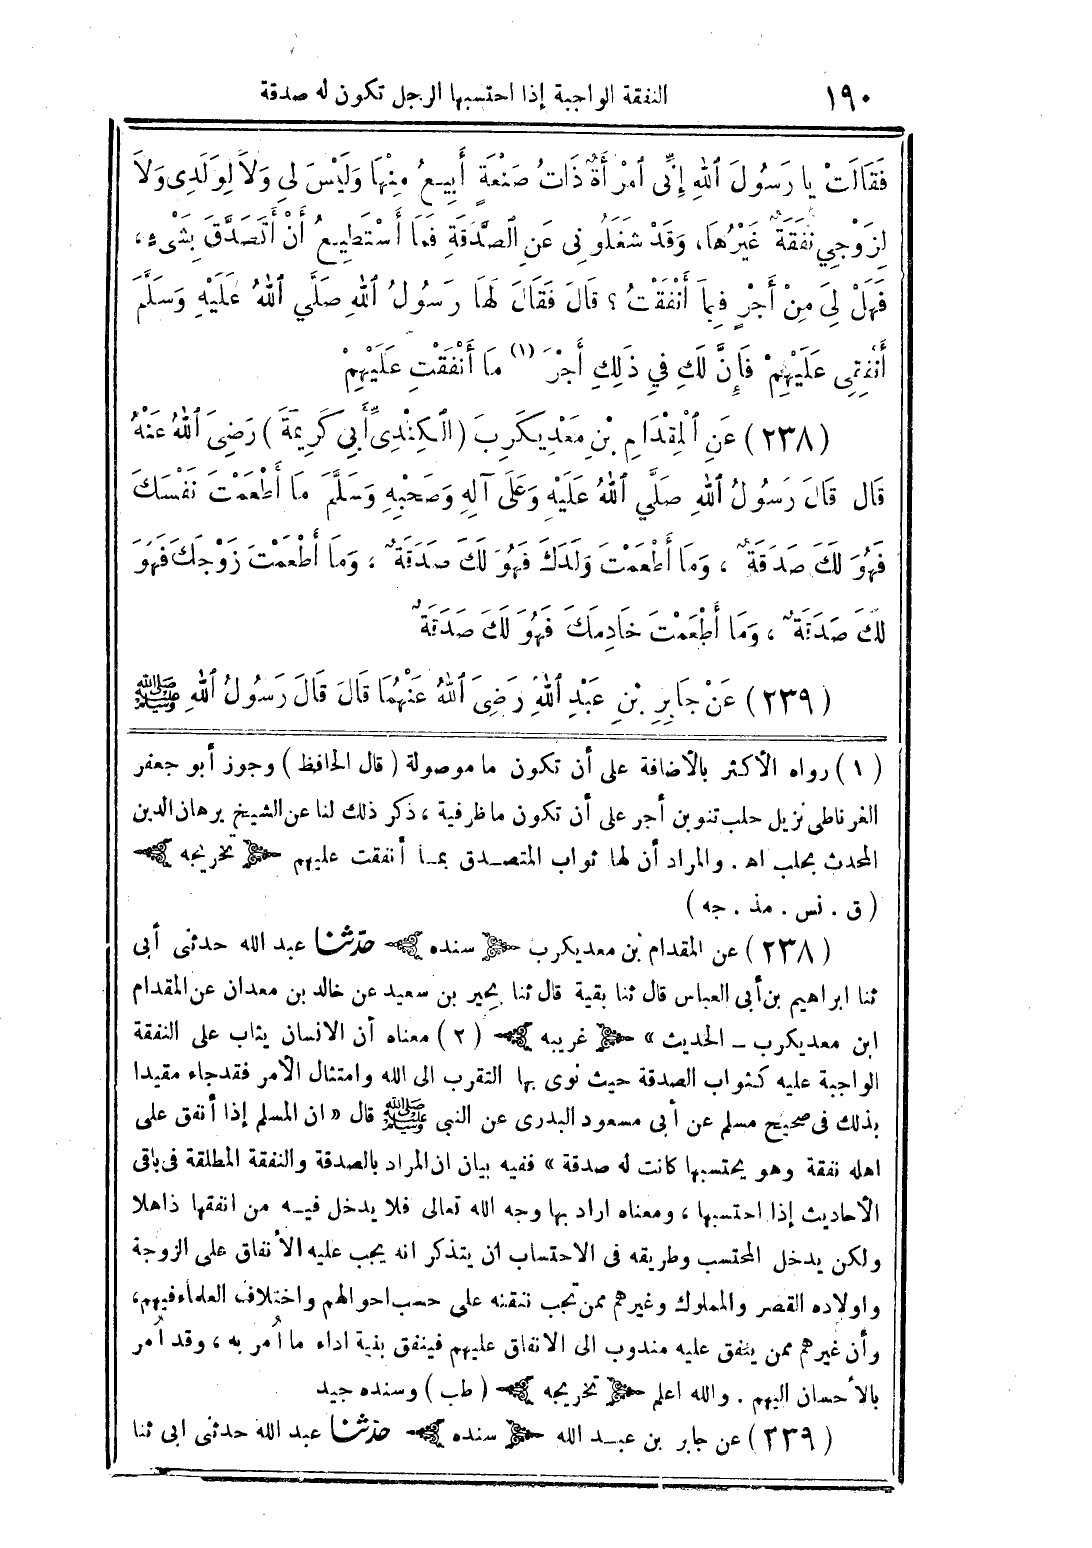 ١٩٠ النفقة الواجبة إذا احتسبها الرجل تكون له صدقة
فَقَالَتْ يا رَسُولَ ٱللهِ إِنِّى ٱمْرَأَةٌ ذَاتُ صَنْعَةٍ أَبِيعُ مِنْهَا وَلَيْسَ لِي وَلاَ لِوَلَدِى وَلاَ
لِزَوْجِي نَفَقَةٌ غَيْرُهَا، وَقَدْ شَغَلُونِى عَنِ ٱلصَّدَقَةِ فَمَا أَسْتَطِيعُ أَنْ أَتَصَدَّقَ بِشَىْءٍ،
فَهَلْ لِيَ مِنْ أَجْرٍ فِيمَا أَنْفَقْتُ ؟ قالَ فَقَالَ لَهَا رَسُولُ ٱللهِ صَلَّي ٱللهُ عَلَيْهِ وَسَلَّمَ
أَنْفِقِى عَلَيْهِمْ فَإِنَّ لَكِ فِي ذَلِكِ أَجْرَ (١) مَا أَنْفَقْتِ عَلَيْهِمْ
(٢٣٨) عَنِ ٱلْمِقْدَامِ بْنِ مَعْدِيكَرِبَ (ٱلْكِنْدِىِّ أَبِي كَرِيمَةَ) رَضِىَ ٱللهُ عَنْهُ
قَال قَالَ رَسُولُ ٱللهِ صَلَّي ٱللهُ عَلَيْهِ وَعَلَى آلِهِ وَصَحْبِهِ وَسَلَّمَ مَا أَطْعَمْتَ نَفْسَكَ
فَهُوَ لَكَ صَدَقَةٌ ، وَمَا أَطْعَمْتَ وَلَدَكَ فَهُوَ لَكَ صَدَقَةٌ ، وَمَا أَطْعَمْتَ زَوْجَكَ فَهُوَ
لَكَ صَدَقَةٌ ، وَمَا أَطْعَمْتَ خَادِمَكَ فَهُوَ لَكَ صَدَقَةٌ
(٢٣٩) عَنْ جَابِرِ بْنِ عَبْدِ ٱللهِ رَضِىَ ٱللهُ عَنْهُمَا قَالَ قَالَ رَسُولُ ٱللهِ ﷺ
(١) رواه الأكثر بالأضافة على أن تكون ما موصولة (قال الحافظ) وجوز أبو جعفر
الغرناطى نزيل حلب تنوين أجر على أن تكون ما ظرفية ، ذكر ذلك لنا عن الشيخ برهان الدين
المحدث بحلب اه . والمراد أن لها ثواب المتصدق بما أنفقت عليهم ﴿ تخريجه ﴾
(ق . نس . مذ . جه)
(٢٣٨) عن المقدام بن معديكرب ﴿ سنده ﴾ حدّثنا عبد الله حدثنى أبى
ثنا ابراهيم بن أبى العباس قال ثنا بقية قال ثنا بحير بن سعيد عن خالد بن معدان عن المقدام
ابن معديكرب ــ الحديث » ﴿ غريبه ﴾ (٢) معناه أن الانسان يثاب على النفقة
الواجبة عليه كثواب الصدقة حيث نوى بها التقرب الى الله وامتثال الأمر فقد جاء مقيدا
بذلك فى صحيح مسلم عن أبى مسعود البدرى عن النبى ﷺ قال « ان المسلم إذا أنفق على
اهله نفقة وهو يحتسبها كانت له صدقة » ففيه بيان ان المراد بالصدقة والنفقة المطلقة فى باقى
الأحاديث إذا احتسبها ، ومعناه اراد بها وجه الله تعالى فلا يدخل فيه من انفقها ذاهلا
ولكن يدخل المحتسب وطريقه فى الاحتساب ان يتذكر انه يجب عليه الأنفاق على الزوجة
واولاده القصر والمملوك وغيرهم ممن تجب نفقته على حسب احوالهم واختلاف العلماء فيهم،
وأن غيرهم ممن ينفق عليه مندوب الى الانفاق عليهم فينفق بنية اداء ما أُمر به ، وقد أُمر
بالأحسان اليهم . والله اعلم ﴿ تخريجه ﴾ (طب) وسنده جيد
(٢٣٩) عن جابر بن عبد الله ﴿ سنده ﴾ حدّثنا عبد الله حدثنى ابى ثنا